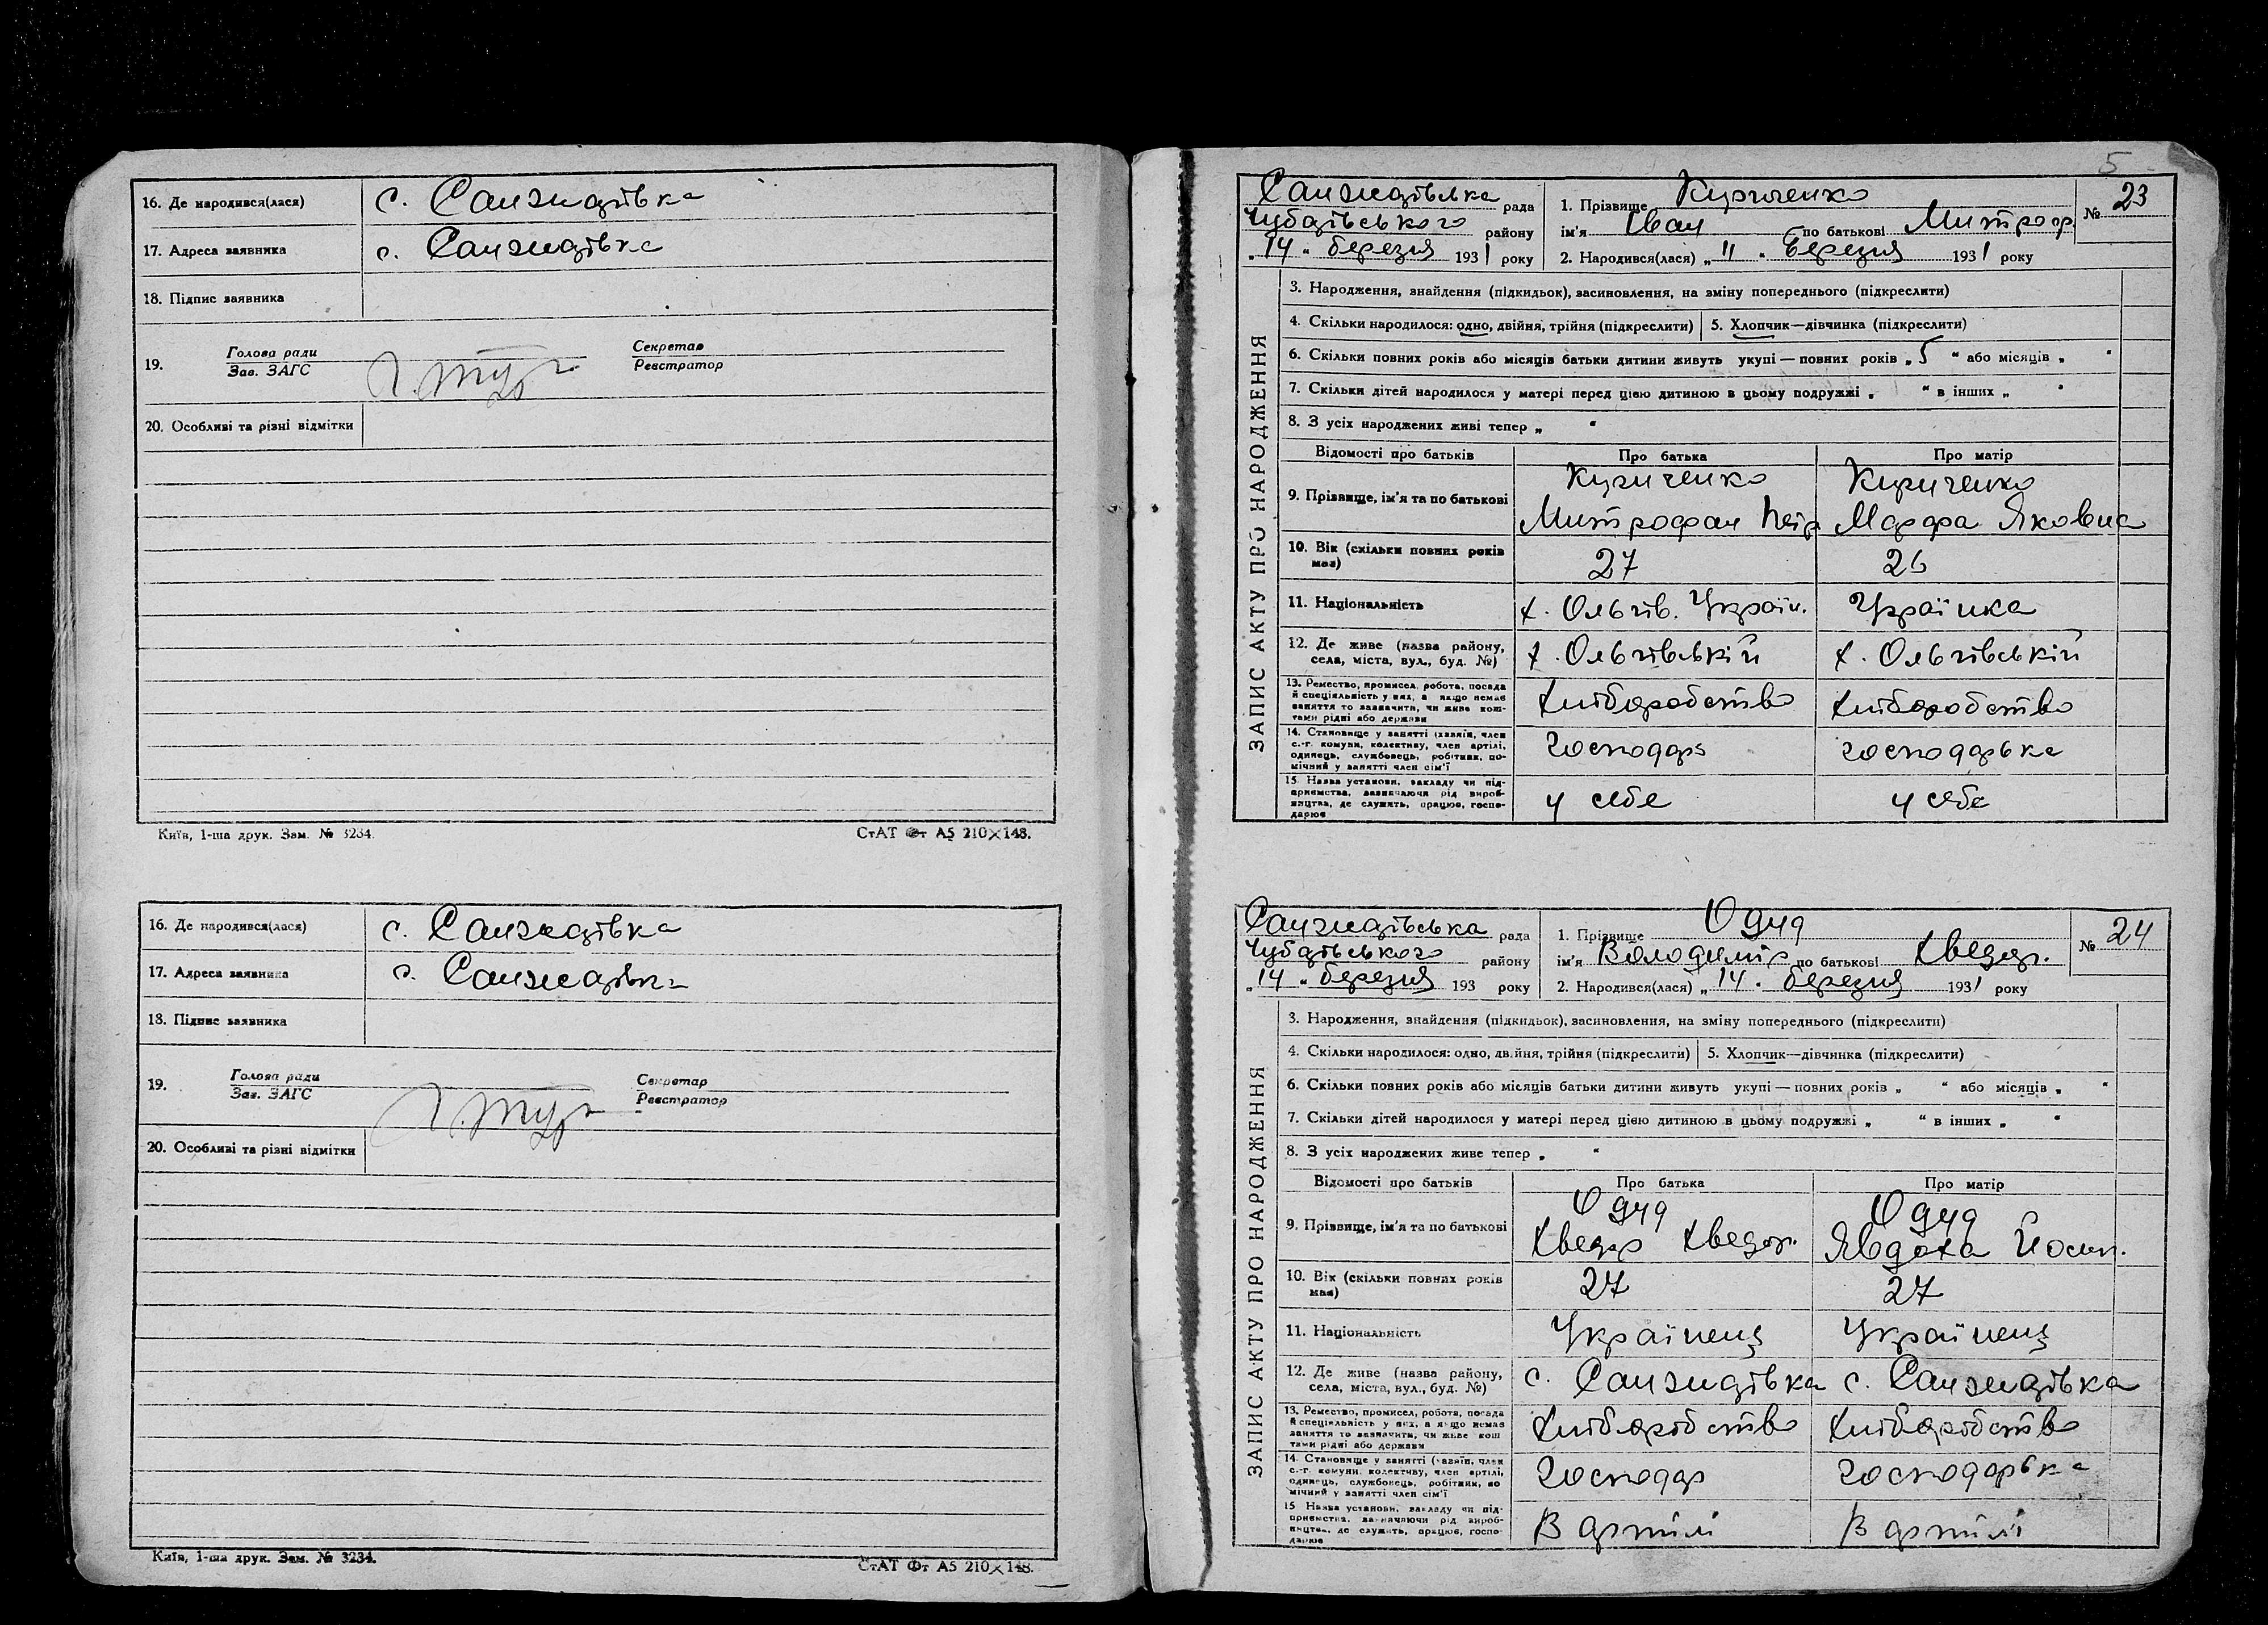 16. Де народився(лася) с. Санжидівка
17. Адреса заявника с. Санжидівка
18. Підпис заявника
19. Голова ради
Зав. ЗАГС
Секретар
Реєстратор
20. Особливі та різні відмітки
Київ, 1-ша друк. Зам. № 3234.
СтАТ Фт А5 210×148.
16. Де народився(лася) с. Санжидівка
17. Адреса заявника с. Санжидівка
18. Підпис заявника
19. Голова ради
Зав. ЗАГС
Секретар
Реєстратор
20. Особливі та різні відмітки
Київ, 1-ша друк. Зам. № 3234.
СтАТ Фт А5 210×148.
5
ЗАПИС АКТУ ПРО НАРОДЖЕННЯ
Санжидівська рада
Чубарівського району
„14„ березня 1931 року
1. Прізвище Кириченко
ім'я Іван по батькові Митроф.
2. Народився(лася) „11„ березня 1931 року
№ 23
3. Народження, знайдення (підкидьок), засиновлення, на зміну попереднього (підкреслити)
4. Скільки народилося: одно, двійня, трійня (підкреслити) 5. Хлопчик—дівчинка (підкреслити)
6. Скільки повних років або місяців батьки дитини живуть укупі — повних років „5“ або місяців „ “
7. Скільки дітей народилося у матері перед цією дитиною в цьому подружжі „ “ в інших „ “
8. З усіх народжених живі тепер „ “
Відомості про батьків Про батька Про матір
9. Прізвище, ім'я та по батькові
Кириченко Кириченко
Митрофан Петр Марфа Яковна
10. Вік (скільки повних років має) 27 26
11. Національність х. Ольгів. Україн. Українка
12. Де живе (назва району,
села, міста, вул., буд. №) х. Ольгівський х. Ольгівський
13. Ремество, промисел, робота, посада
й спеціяльність у них, а якщо немає
заняття то зазначити, чи живе кош-
тами рідні або держави
хліборобство хліборобство
14. Становище у занятті (хазяїн, член
с.-г. комуни, колективу, член артілі,
одинець, службовець, робітник, по-
мічний у занятті член сім'ї
господар господарька
15. Назва установи, закладу чи під-
приємства, зазначаючи рід вироб-
ництва, де служить, працює, госпо-
дарює
у себе у себе
ЗАПИС АКТУ ПРО НАРОДЖЕННЯ
Санжидівська рада
Чубарівського району
„14„ березня 193 року
1. Прізвище
ім'я Володимір по батькові Хведор.
2. Народився(лася) „14. березня 1931 року
№ 24
3. Народження, знайдення (підкидьок), засиновлення, на зміну попереднього (підкреслити)
4. Скільки народилося: одно, двійня, трійня (підкреслити) 5. Хлопчик—дівчинка (підкреслити)
6. Скільки повних років або місяців батьки дитини живуть укупі — повних років „ “ або місяців „ “
7. Скільки дітей народилося у матері перед цією дитиною в цьому подружжі „ “ в інших „ “
8. З усіх народжених живе тепер „ “
Відомості про батьків Про батька Про матір
9. Прізвище, ім'я та по батькові
Хведор Хведор. Явдоха Йосип.
10. Вік (скільки повних років має) 27 27
11. Національність Українець Українець
12. Де живе (назва району,
села, міста, вул., буд. №) с. Санжидівка с. Санжидівка
13. Ремество, промисел, робота, посада
й спеціяльність у них, а якщо немає
заняття то зазначити, чи живе кош
тами рідні або держави
хліборобство хліборобство
14. Становище у занятті (хазяїн, член
с.-г. комуни, колективу, член артілі,
одинець, службовець, робітник, по
мічний у занятті член сім'ї
господар господарька
15 Назва установи, закладу чи під-
приємства, зазначаючи рід вироб-
ництва, де служить, працює, госпо-
дарює
В артілі В артілі